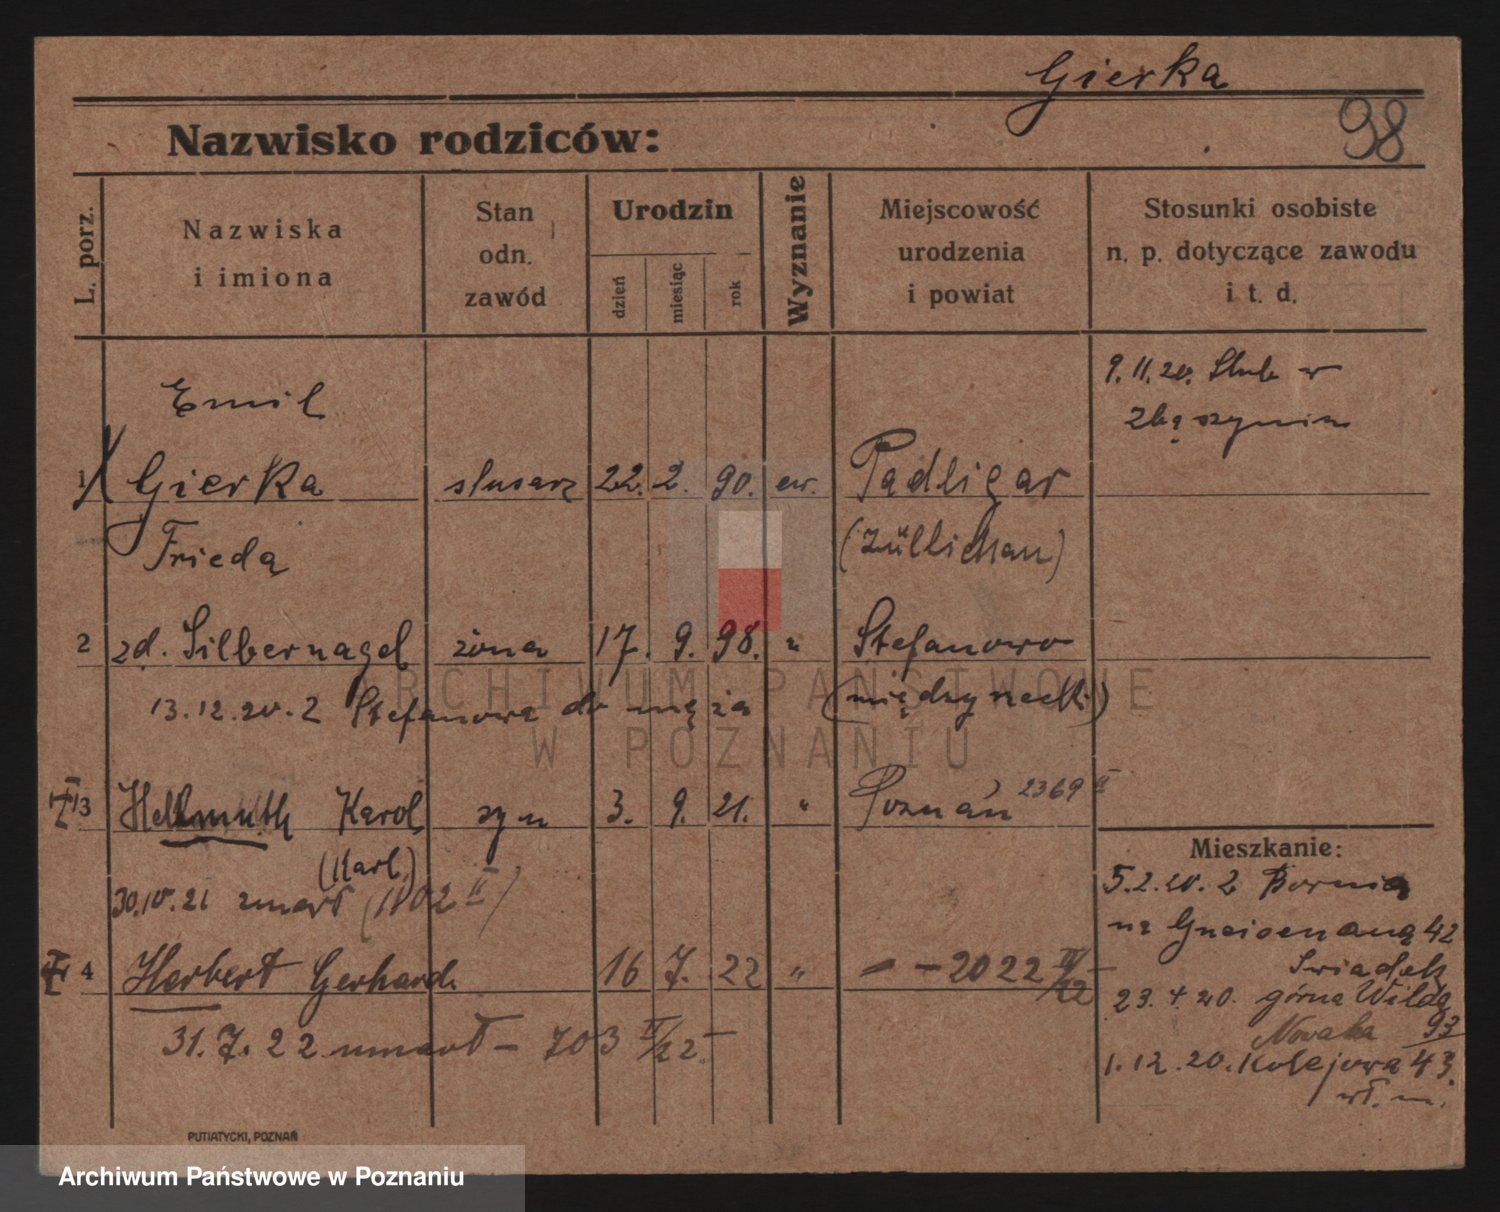 Gierka
98
Nazwisko rodziców:
L. porz.
Nazwiska
i imiona
Stan
odn.
zawód
Urodzin
dzień
miesiąc
rok
Wyznanie
Miejscowość
urodzenia
i powiat
Stosunki osobiste
n. p. dotyczące zawodu
i t. d.
9.11.20. Ślub w
Zbąszyniu
Emil
1 Gierka ślusarz 22. 2. 90. ew. Padligar
(Züllichau)
Frieda
2 zd. Silbernagel żona 17. 9. 98. " Stefanowo
(międzyrzecki)
13.12.20. z Stefanowa do męża
3 Hellmuth Karol syn 3. 9. 21. " Poznań 2369 II
(Karl.)
30.10.21 zmarł (1102 II)
4 Herbert Gerhard. 16 7. 22 " – – 2022 IV/22
31.7.22 umarł – 703 IV/22.
Mieszkanie:
5.2.20. z Bornia
na Gneisenaua 42
23.4.20. górna Wilda
Nowaka 93
1.12.20. Kolejowa 43.
wł. m.
PUTIATYCKI, POZNAŃ
ARCHIWUM PAŃSTWOWE
W POZNANIU
Archiwum Państwowe w Poznaniu